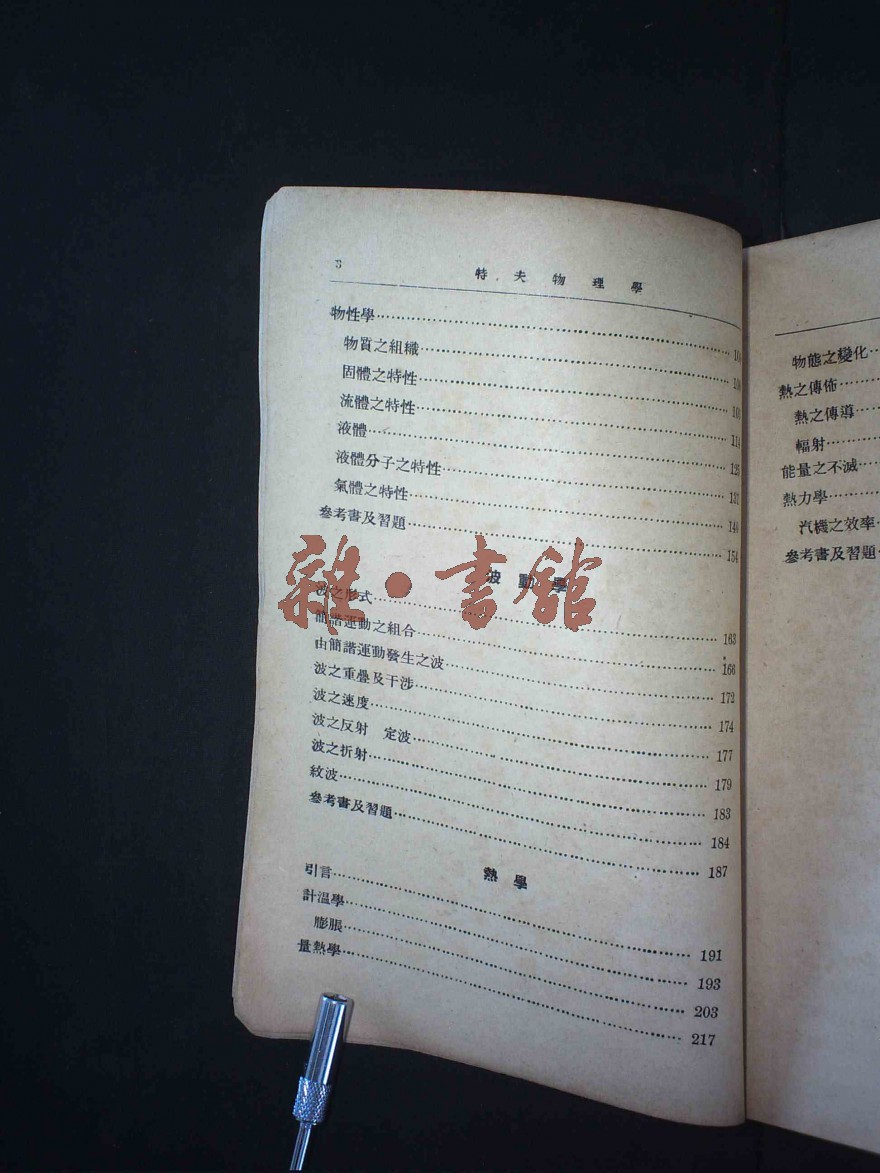 特夫物理學
物性學
物質之組織
固體之特性
流體之特性……114
液體……125
液體分子之特性
氣體之特性
參考書及習題……154
波動學
波之形式……163
簡諧運動之組合……166
由簡諧運動發生之波……172
波之重疊及干涉……174
波之速度……177
波之反射 定波……179
波之折射……183
紋波……184
參考書及習題……187
熱學
引言……191
計溫學……193
膨脹……203
量熱學……217
物態之變化……
熱之傳佈……
熱之傳導……
輻射……
能量之不滅……
熱力學……
汽機之效率……
參考書及習題……
雜·書館